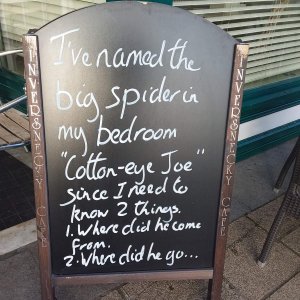 I've named the
big spider in
my bedroom
"Cotton-eye Joe"
since I need to
know 2 things.
1. Where did he come
from.
2. Where did he go...
INVERSNECKY CAFE
INVERSNECKY CAFE